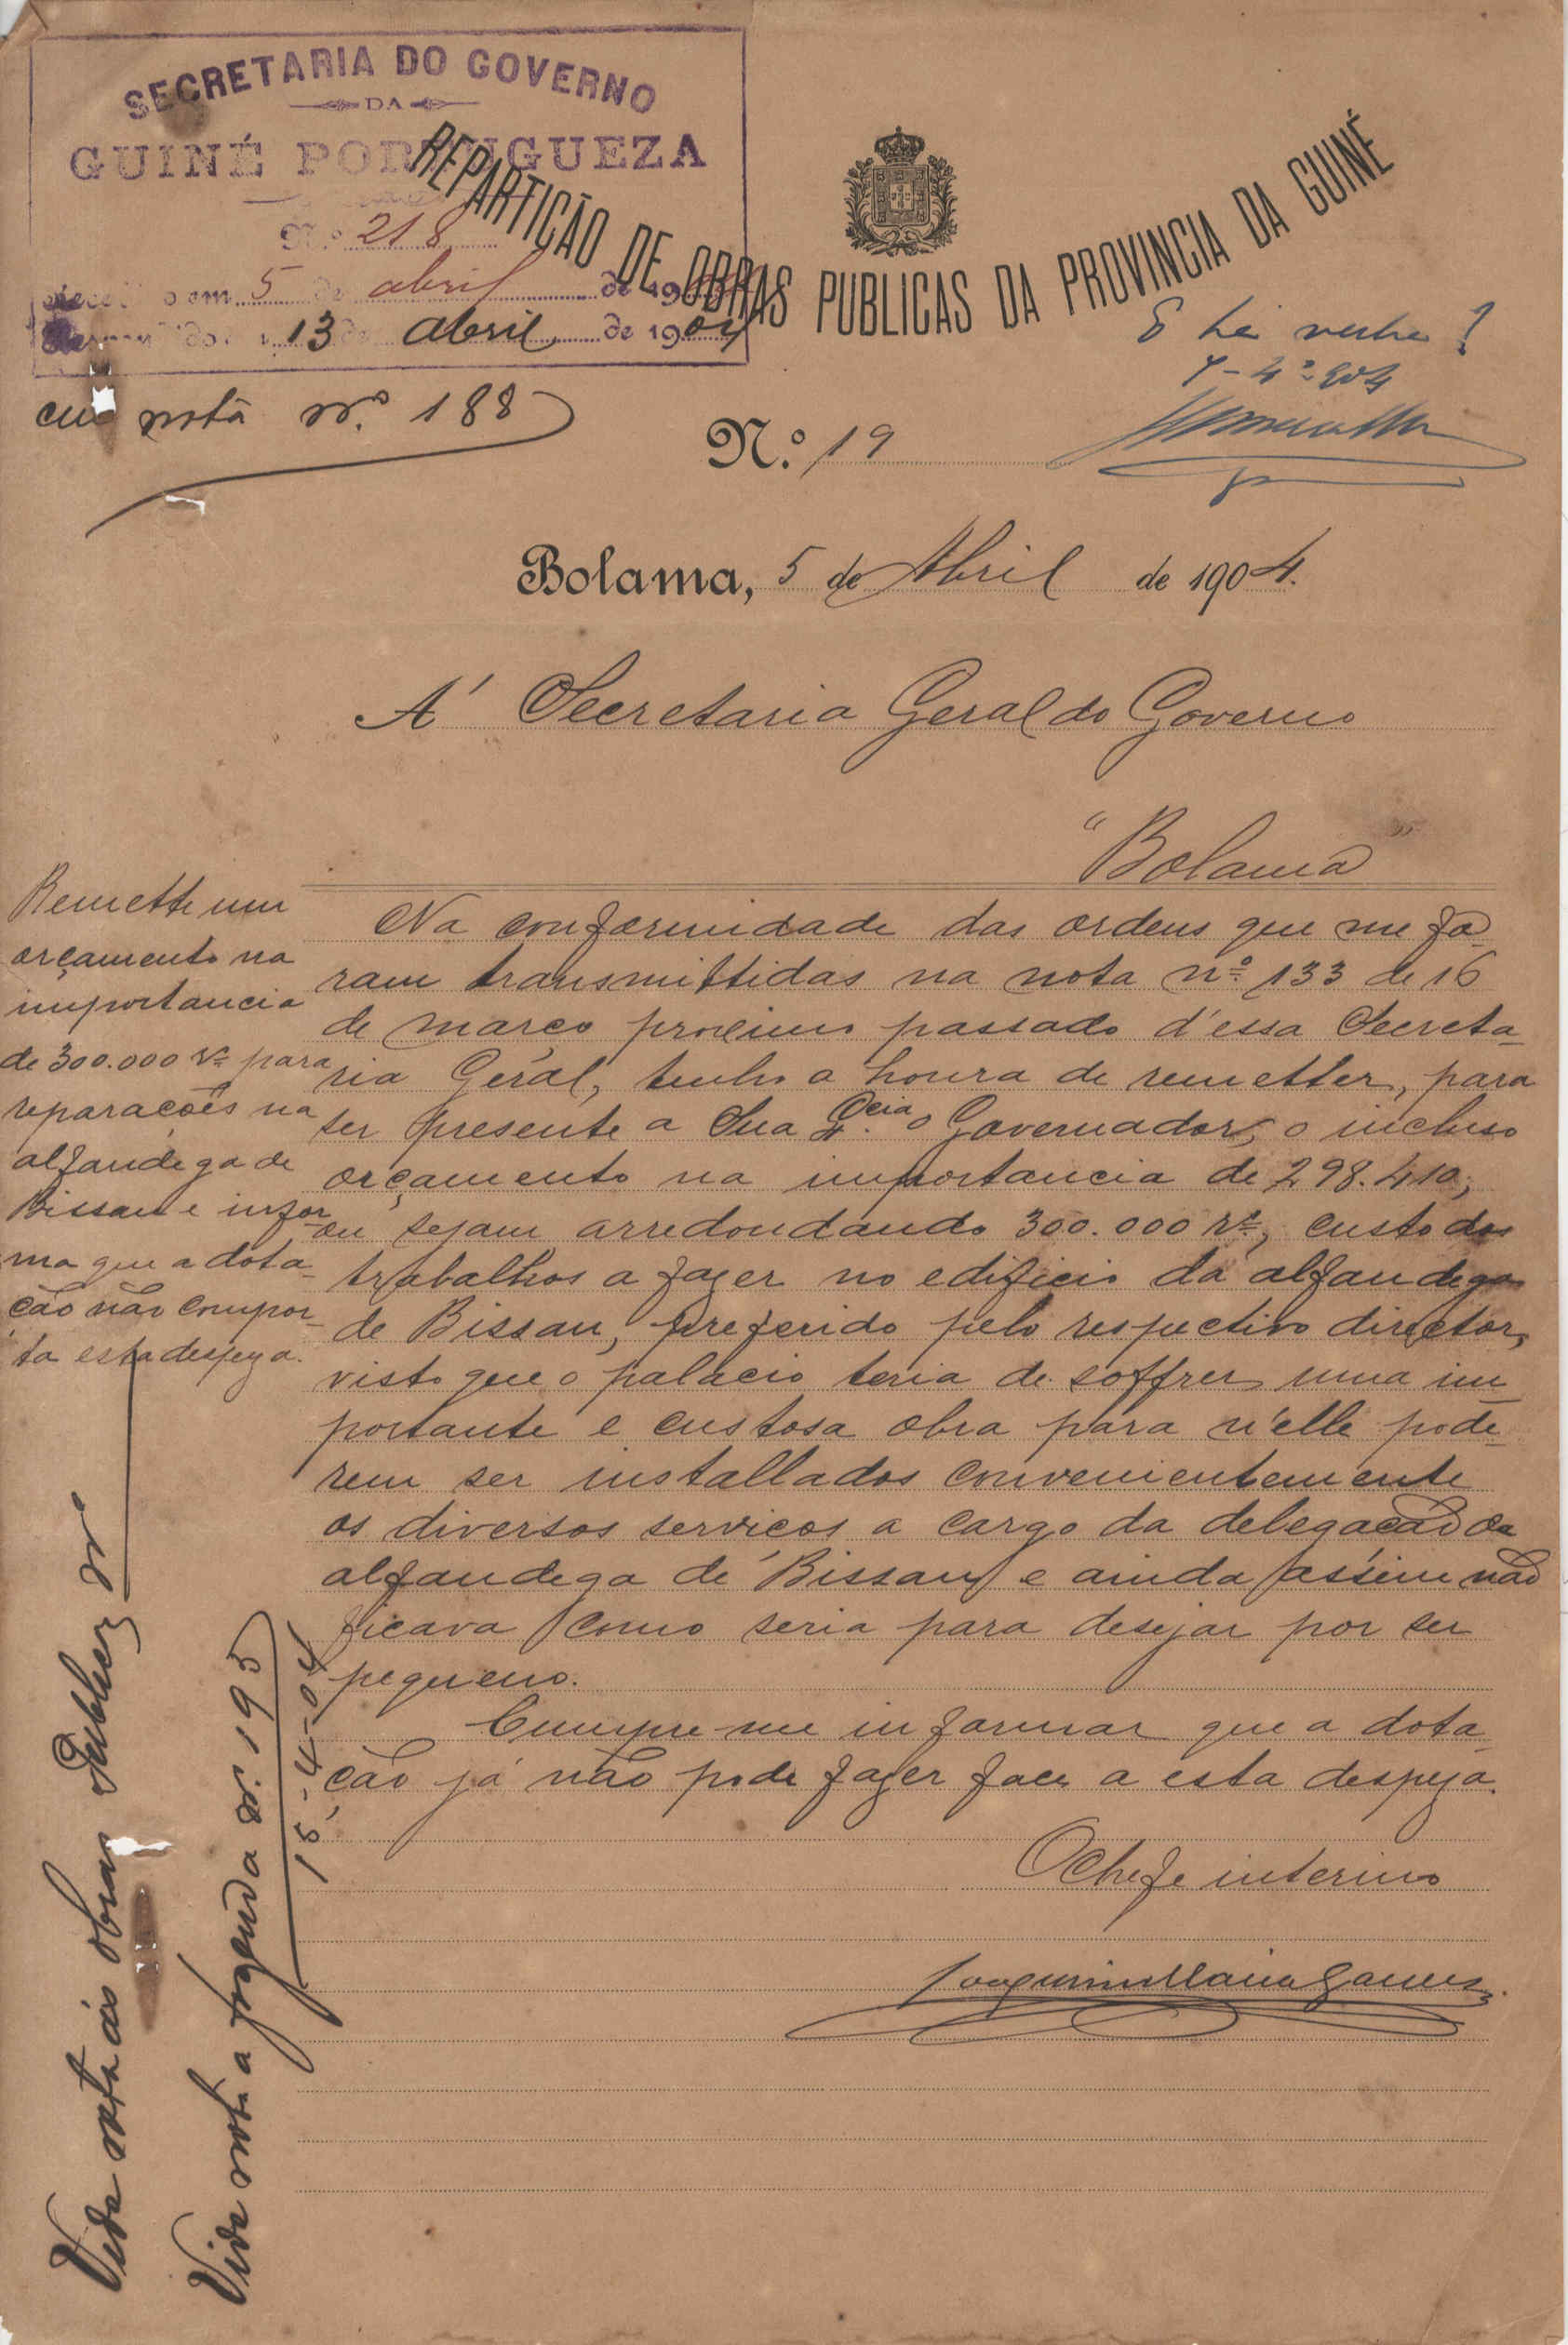 SECRETARIA DO GOVERNO
DA
GUINÉ PORTUGUEZA
N.º 218
Recebido em 5 de abril de 19
Respondido em 13 de abril de 1904
em nota n.º 188
REPARTIÇÃO DE OBRAS PUBLICAS DA PROVINCIA DA GUINÉ
E ha verba?
7-4º-904
N.º 19
Bolama, 5 de Abril de 1904.
A' Secretaria Geral do Governo
"Bolama"
Remette um
orçamento na
importancia
de 300.000 rs para
reparações na
alfandega de
Bissau e infor
ma que a dota-
ção não compor-
ta esta despeza.
Na conformidade das ordens que me fo
ram transmittidas na nota nº 133 de 16
de março proximo passado d'essa Secreta-
ria Geral, tenho a honra de remetter, para
ser presente a Sua Ex.cia o Governador, o incluso
orçamento na importancia de 298.410,
ou sejam arredondando 300.000 rs, custo dos
trabalhos a fazer no edificio da alfandega
de Bissau, preferido pelo respectivo director,
visto que o palacio teria de soffrer uma im
portante e custosa obra para n'elle pode-
rem ser installados convenientemente
os diversos serviços a cargo da delegação da
alfandega de Bissau e ainda assim não
ficava como seria para desejar por ser
pequeno.
Cumpre-me informar que a dota
ção já não pode fazer face a esta despeza.
O chefe interino
Joaquim Maria Gomes
Vide nota ás obras Publicas nº
Vide nota a fazenda n.º 195
15-4-04